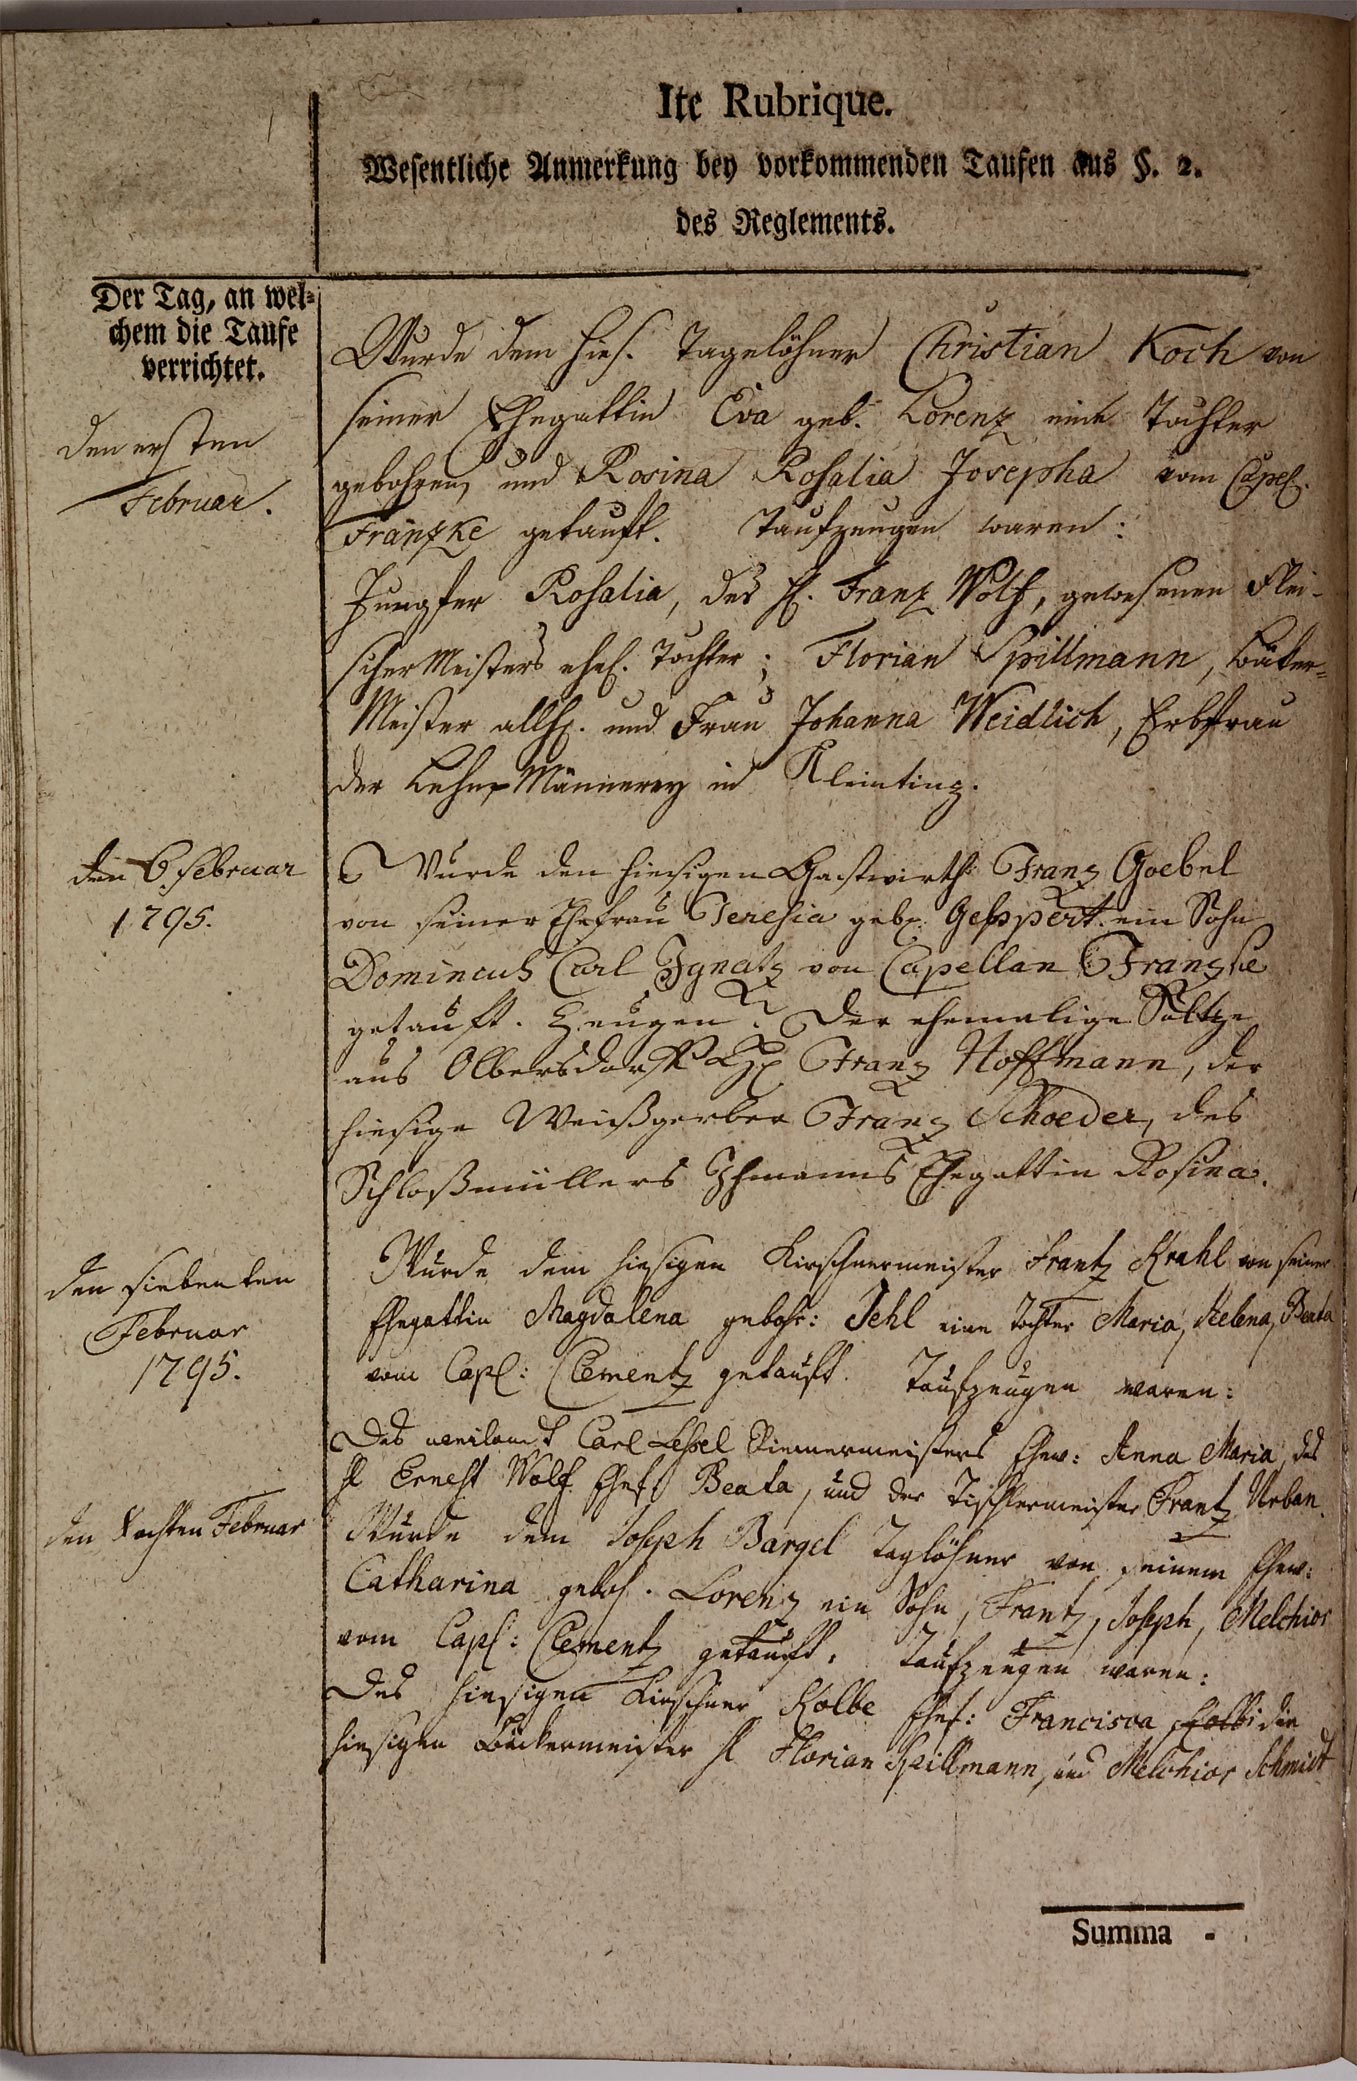 Ite Rubrique.
Wesentliche Anmerkung bey vorkommenden Taufen aus §. 2.
des Reglements.
Der Tag, an wel-
chem die Taufe
verrichtet.
den ersten
Februar.
Wurde dem hies. Tagelöhner Christian Koch von
seiner Ehegattin Eva geb. Lorenz eine Tochter
gebohren, und Rosina Rosalia Josepha vom Capel.
Franzke getauft. Taufzeugen waren:
Jungfer Rosalia, des H. Franz Wolf, gewesenen Flei-
scher Meisters ehel. Tochter; Florian Spillmann, Bäker-
Meister allh. und Frau Johanna Weidlich, Erbfrau
der Lehn Männerey in Kleintinz.
den 6. Februar
1795.
Wurde den hiesigen Gastwirth Franz Goebel
von seiner Ehefrau Teresia geb. Geppert ein Sohn
Domincus Carl Ignatz von Capellan Franzke
getauft. Zeugen: der ehemalige Scoltze
aus Olbersdorff Franz Hoffmann, der
hiesige Weißgerber Franz Schoeder, des
Schloßmüllers Ihmanns Ehegattin Rosina.
den siebenten
Februar
1795.
Wurde dem hiesigen Kirschnermeister Frantz Krahl von seiner
Ehegattin Magdalena gebohr: Jehl eine Tochter Maria, Helena, Beata
vom Capl: Clementz getauft. Taufzeugen waren:
Des weilandt Carl Lessel Riemermeisters Ehew: Anna Maria, des
H Ernest Wolf Ehef. Beata, und der Tischlermeister Frantz Urban.
den Achten Februar
Wurde dem Joseph Bargel Taglöhner von seinem Ehew:
Catharina geboh. Lorenz ein Sohn, Frantz, Joseph, Melchior
vom Capl: Clementz getauft. Taufzeugen waren:
Des hiesigen Kirschner Kolbe Ehef: Francisca die
hiesigen Bäckermeister H Florian Spillmann, und Melchior Schmidt
Summa -